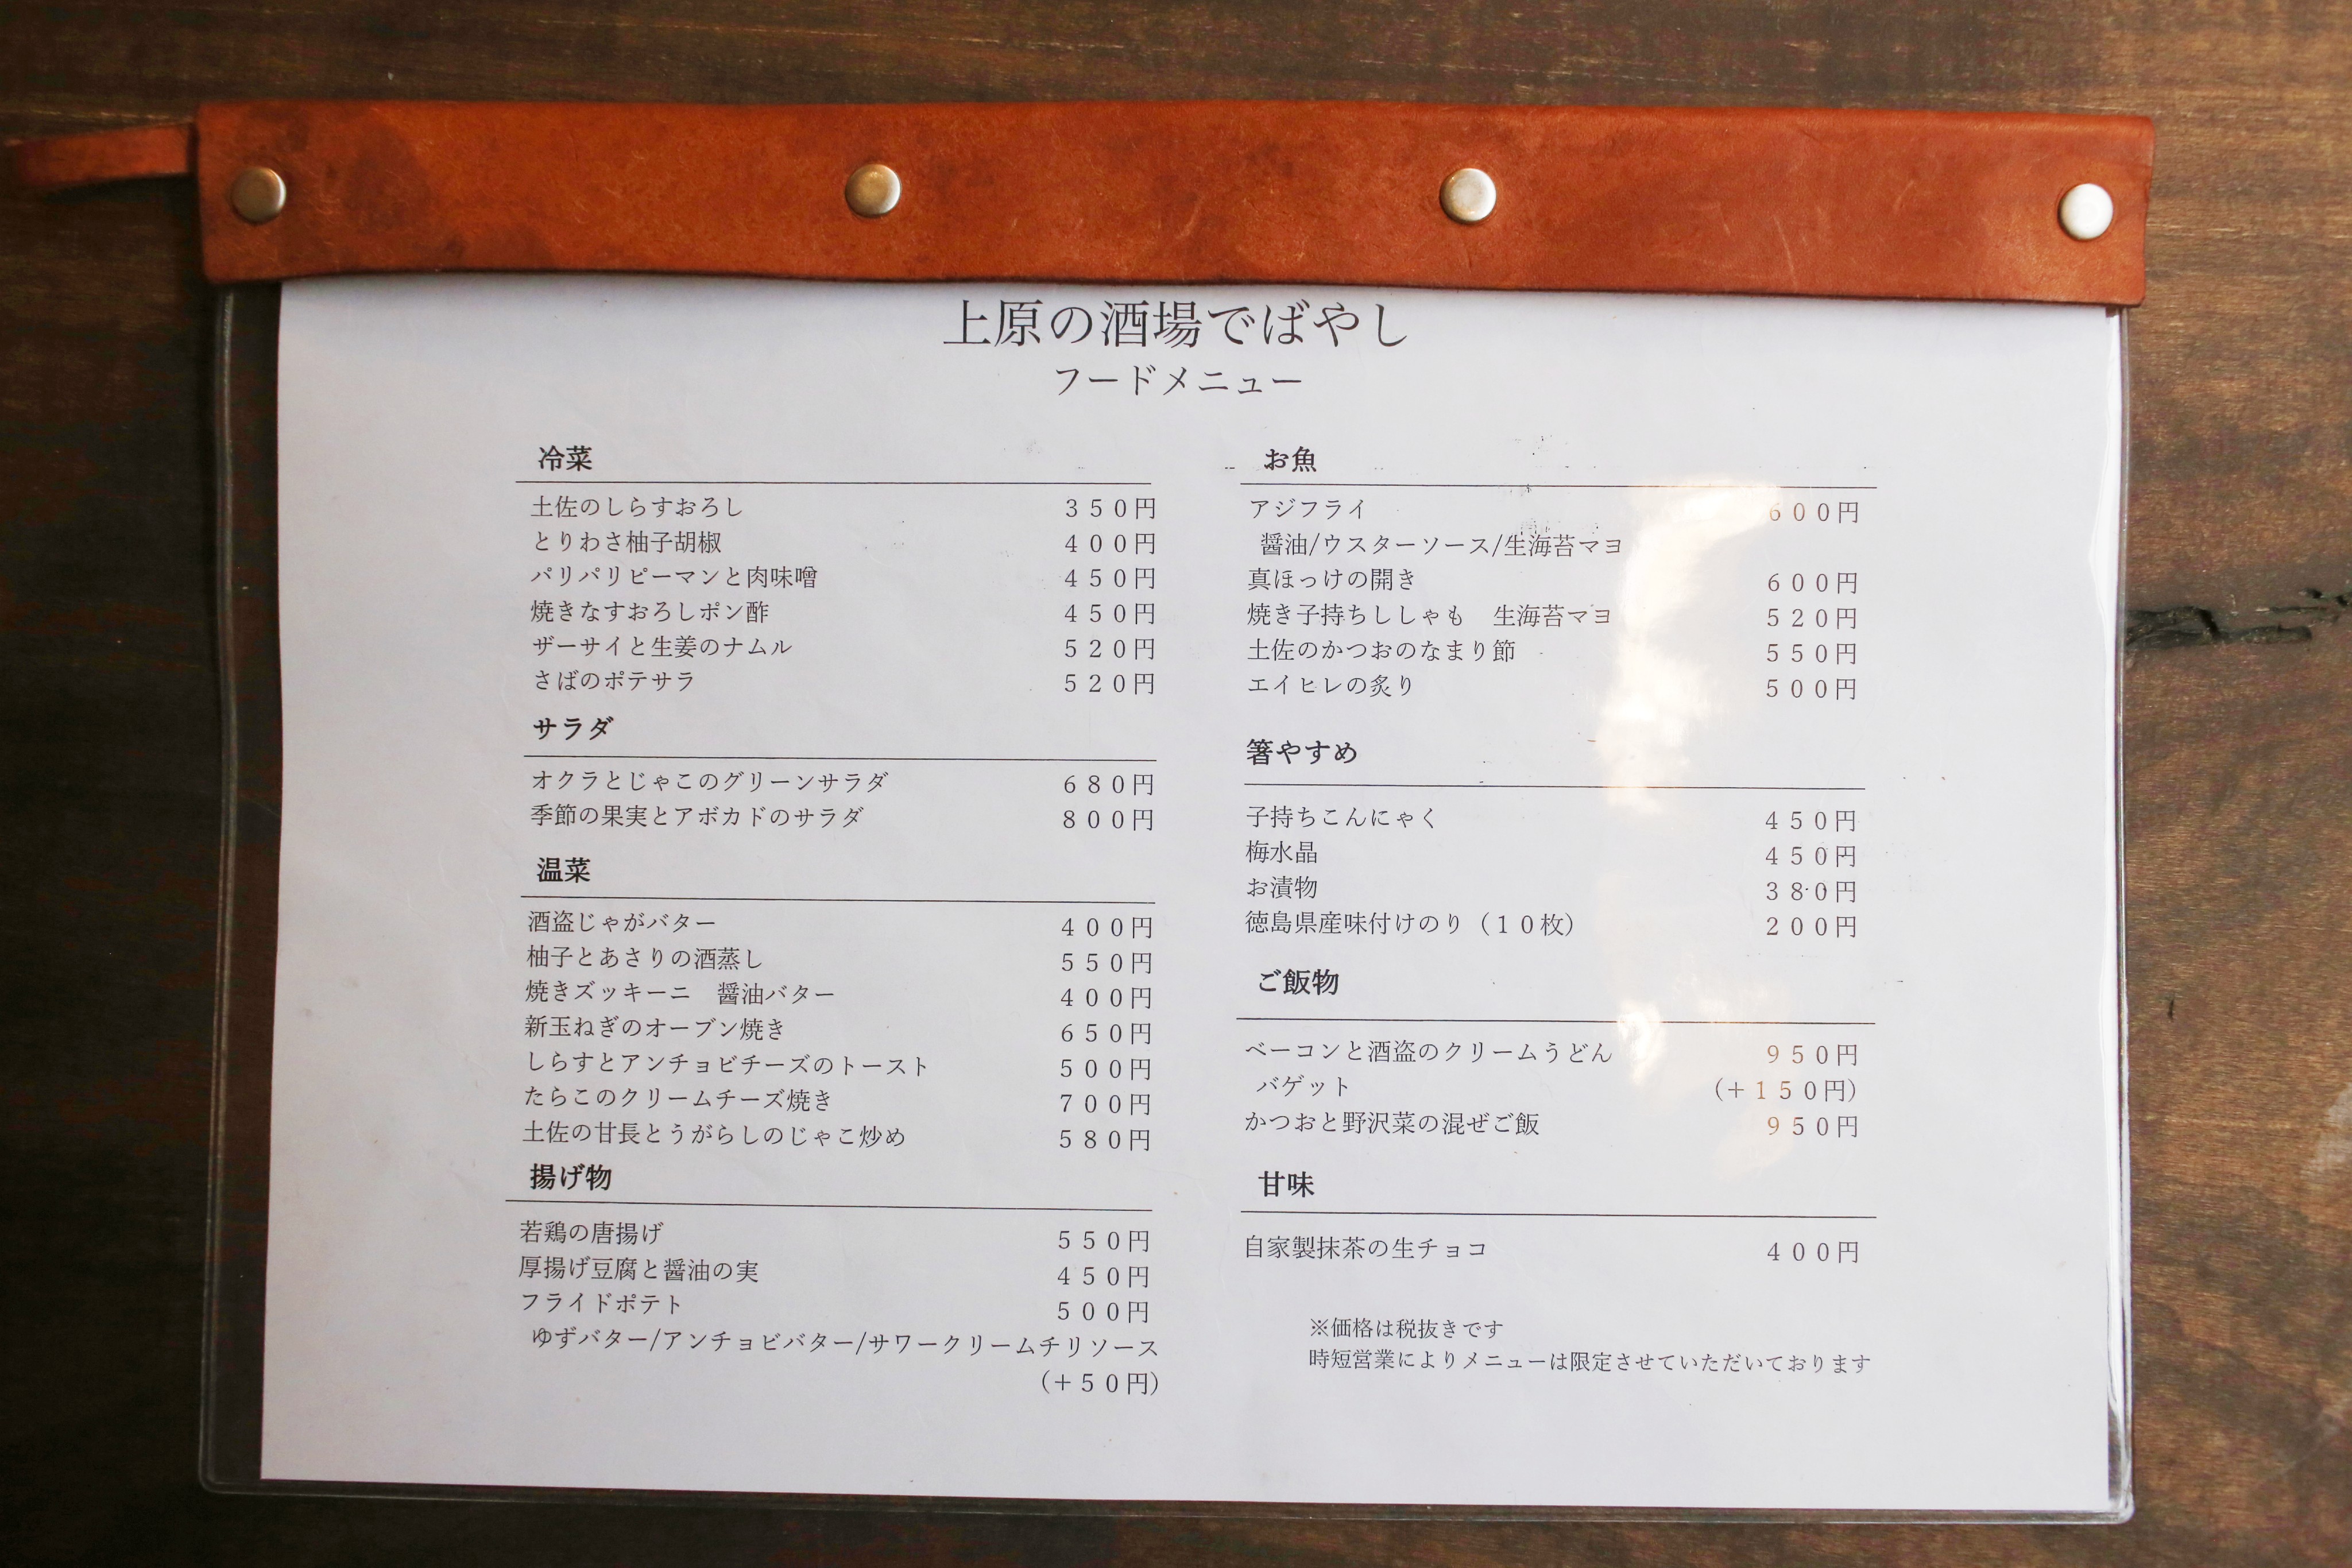 上原の酒場でばやし
フードメニュー
冷菜
土佐のしらすおろし 350円
とりわさ柚子胡椒 400円
パリパリピーマンと肉味噌 450円
焼きなすおろしポン酢 450円
ザーサイと生姜のナムル 520円
さばのポテサラ 520円
サラダ
オクラとじゃこのグリーンサラダ 680円
季節の果実とアボカドのサラダ 800円
温菜
酒盗じゃがバター 400円
柚子とあさりの酒蒸し 550円
焼きズッキーニ　醤油バター 400円
新玉ねぎのオーブン焼き 650円
しらすとアンチョビチーズのトースト 500円
たらこのクリームチーズ焼き 700円
土佐の甘長とうがらしのじゃこ炒め 580円
揚げ物
若鶏の唐揚げ 550円
厚揚げ豆腐と醤油の実 450円
フライドポテト 500円
ゆずバター/アンチョビバター/サワークリームチリソース
（＋50円）
お魚
アジフライ 600円
醤油/ウスターソース/生海苔マヨ
真ほっけの開き 600円
焼き子持ちししゃも　生海苔マヨ 520円
土佐のかつおのなまり節 550円
エイヒレの炙り 500円
箸やすめ
子持ちこんにゃく 450円
梅水晶 450円
お漬物 380円
徳島県産味付けのり（10枚） 200円
ご飯物
ベーコンと酒盗のクリームうどん 950円
バゲット （＋150円）
かつおと野沢菜の混ぜご飯 950円
甘味
自家製抹茶の生チョコ 400円
※価格は税抜きです
時短営業によりメニューは限定させていただいております